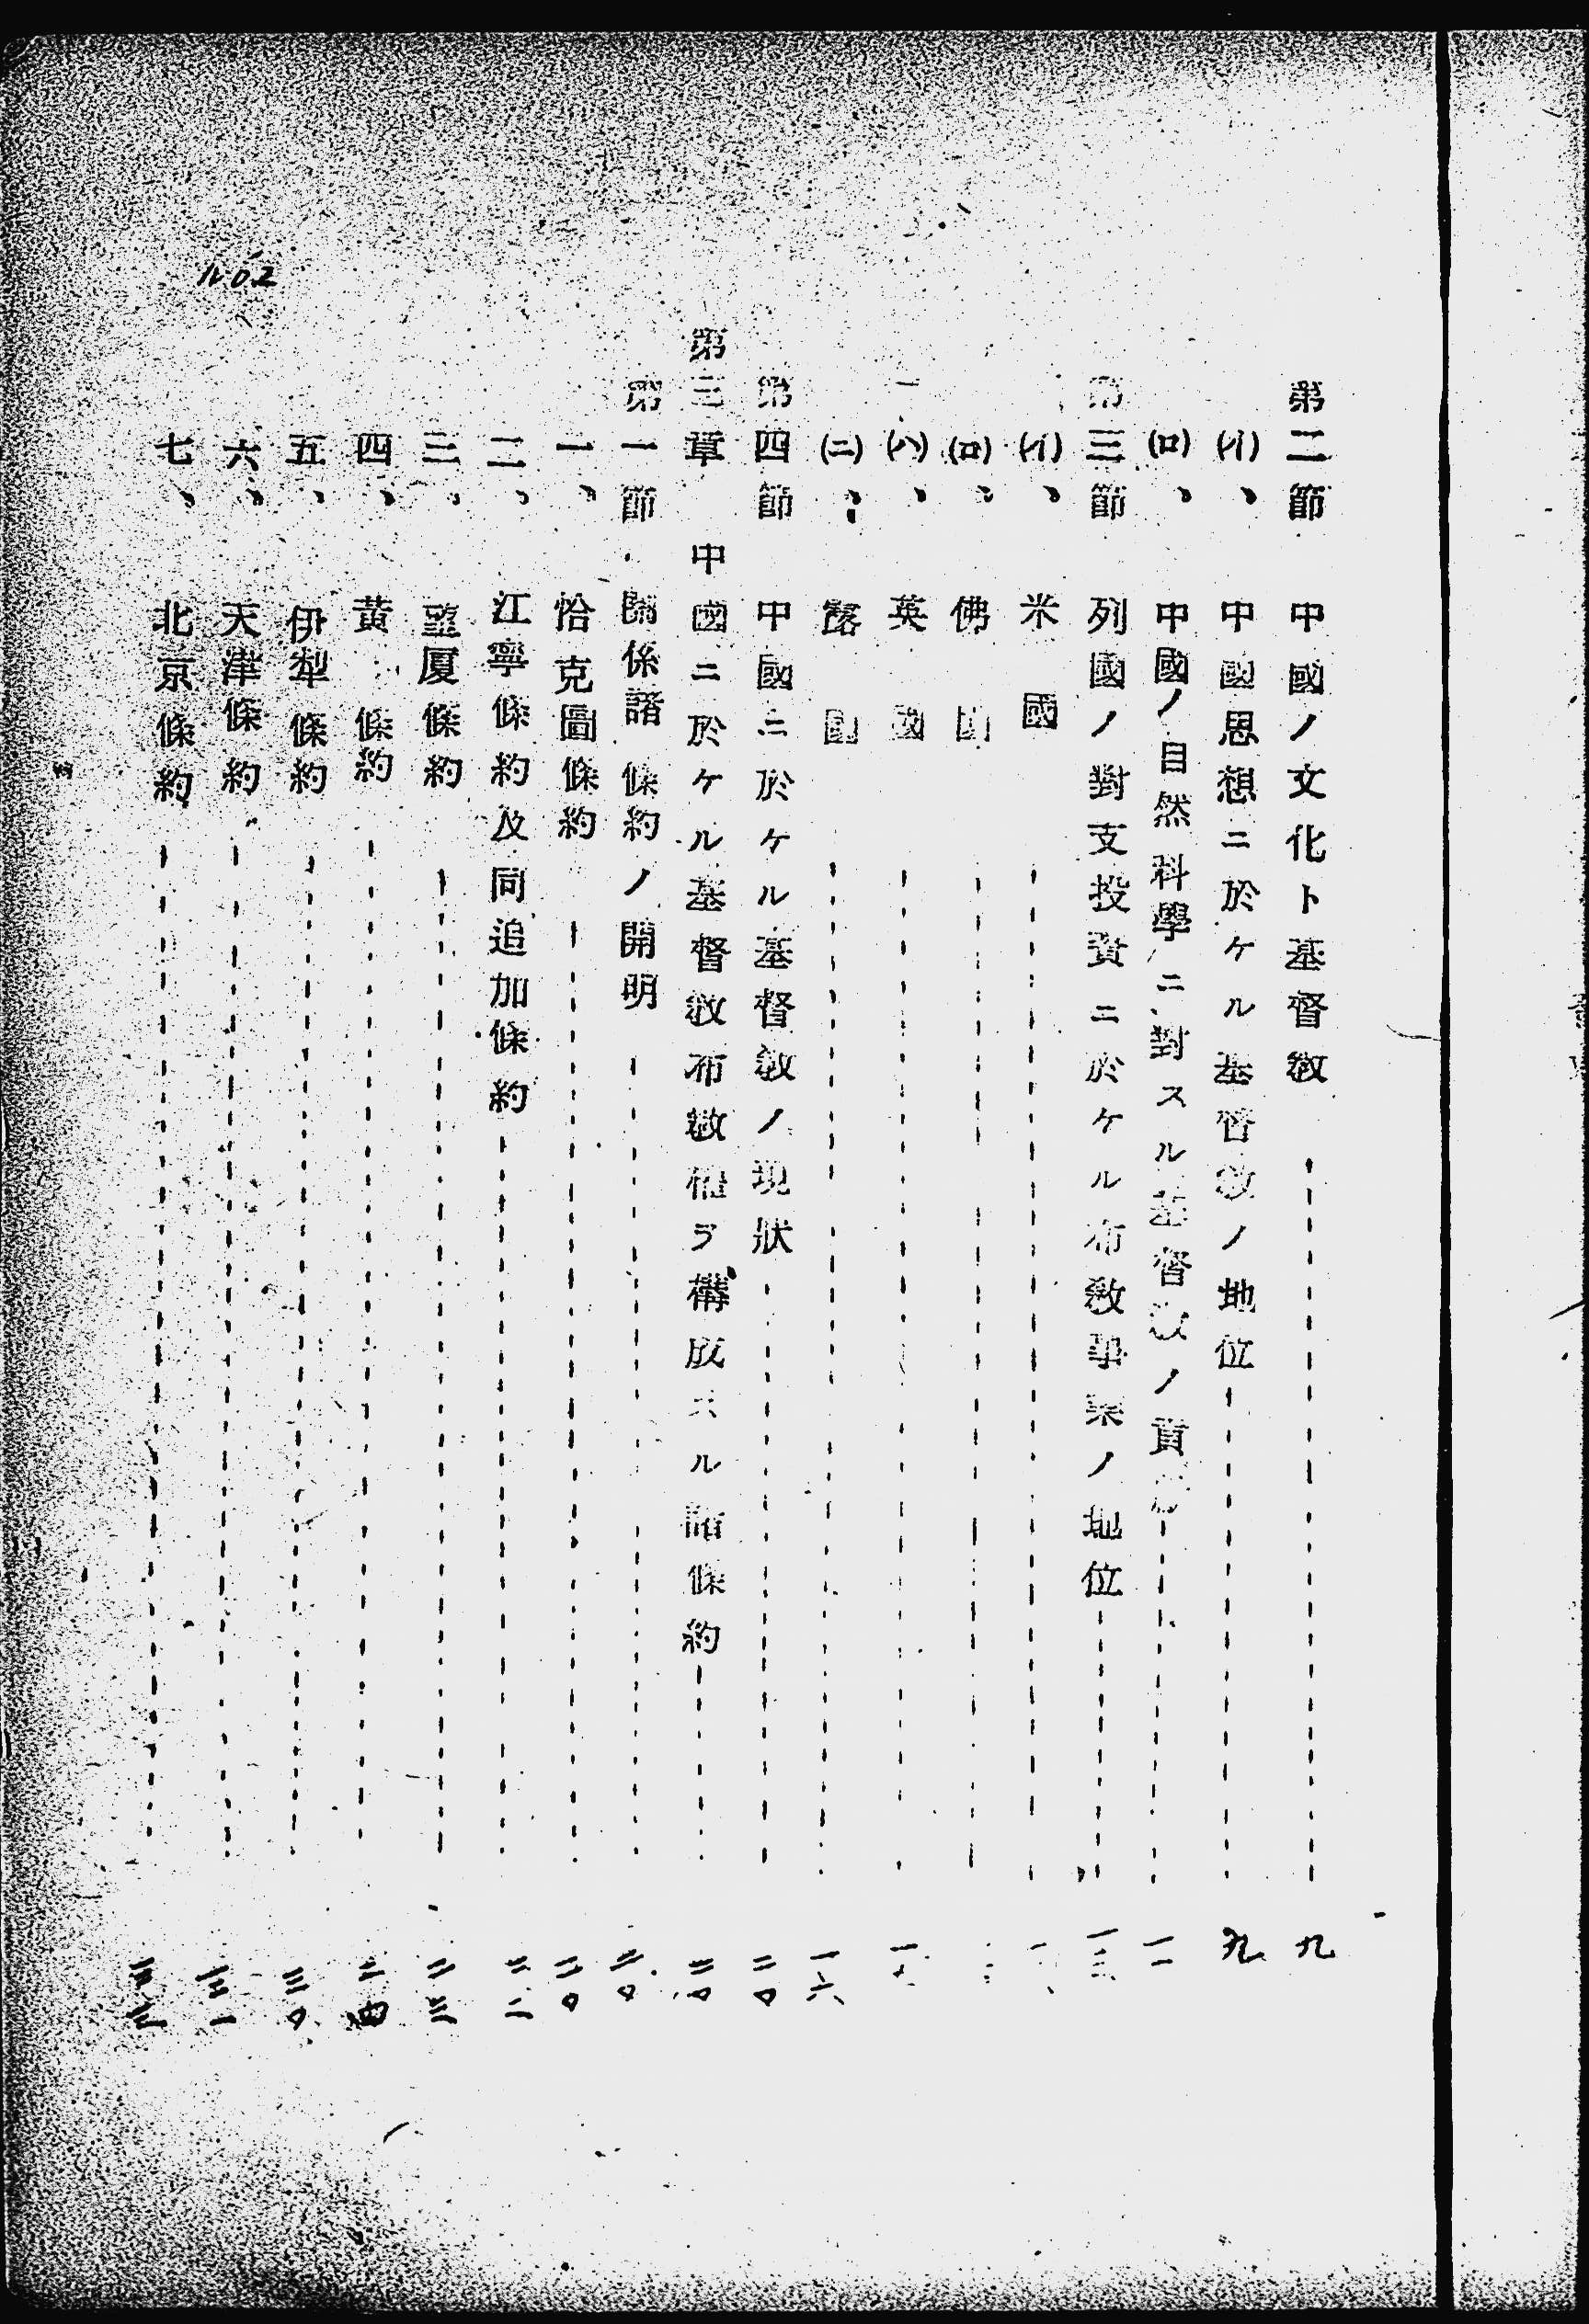 第二節 中國ノ文化ト基督敎 九
(イ)、中國思想ニ於ケル基督敎ノ地位 九
(ロ)、中國ノ自然科學ニ對スル基督敎ノ貢 一一
第三節 列國ノ對支投資ニ於ケル布敎事業ノ地位 一三
(イ)、米國
(ロ)、佛國
(ハ)、英國
(ニ)、露國 一六
第四節 中國ニ於ケル基督敎ノ現狀 二〇
第三章 中國ニ於ケル基督敎布敎權ヲ構成スル諸條約 二〇
第一節 關係諸條約ノ開明 二〇
一、恰克圖條約 二〇
二、江寧條約及同追加條約 二二
三、望厦條約 二三
四、黃 條約 二四
五、伊犁條約 三〇
六、天津條約 三一
七、北京條約
No.2